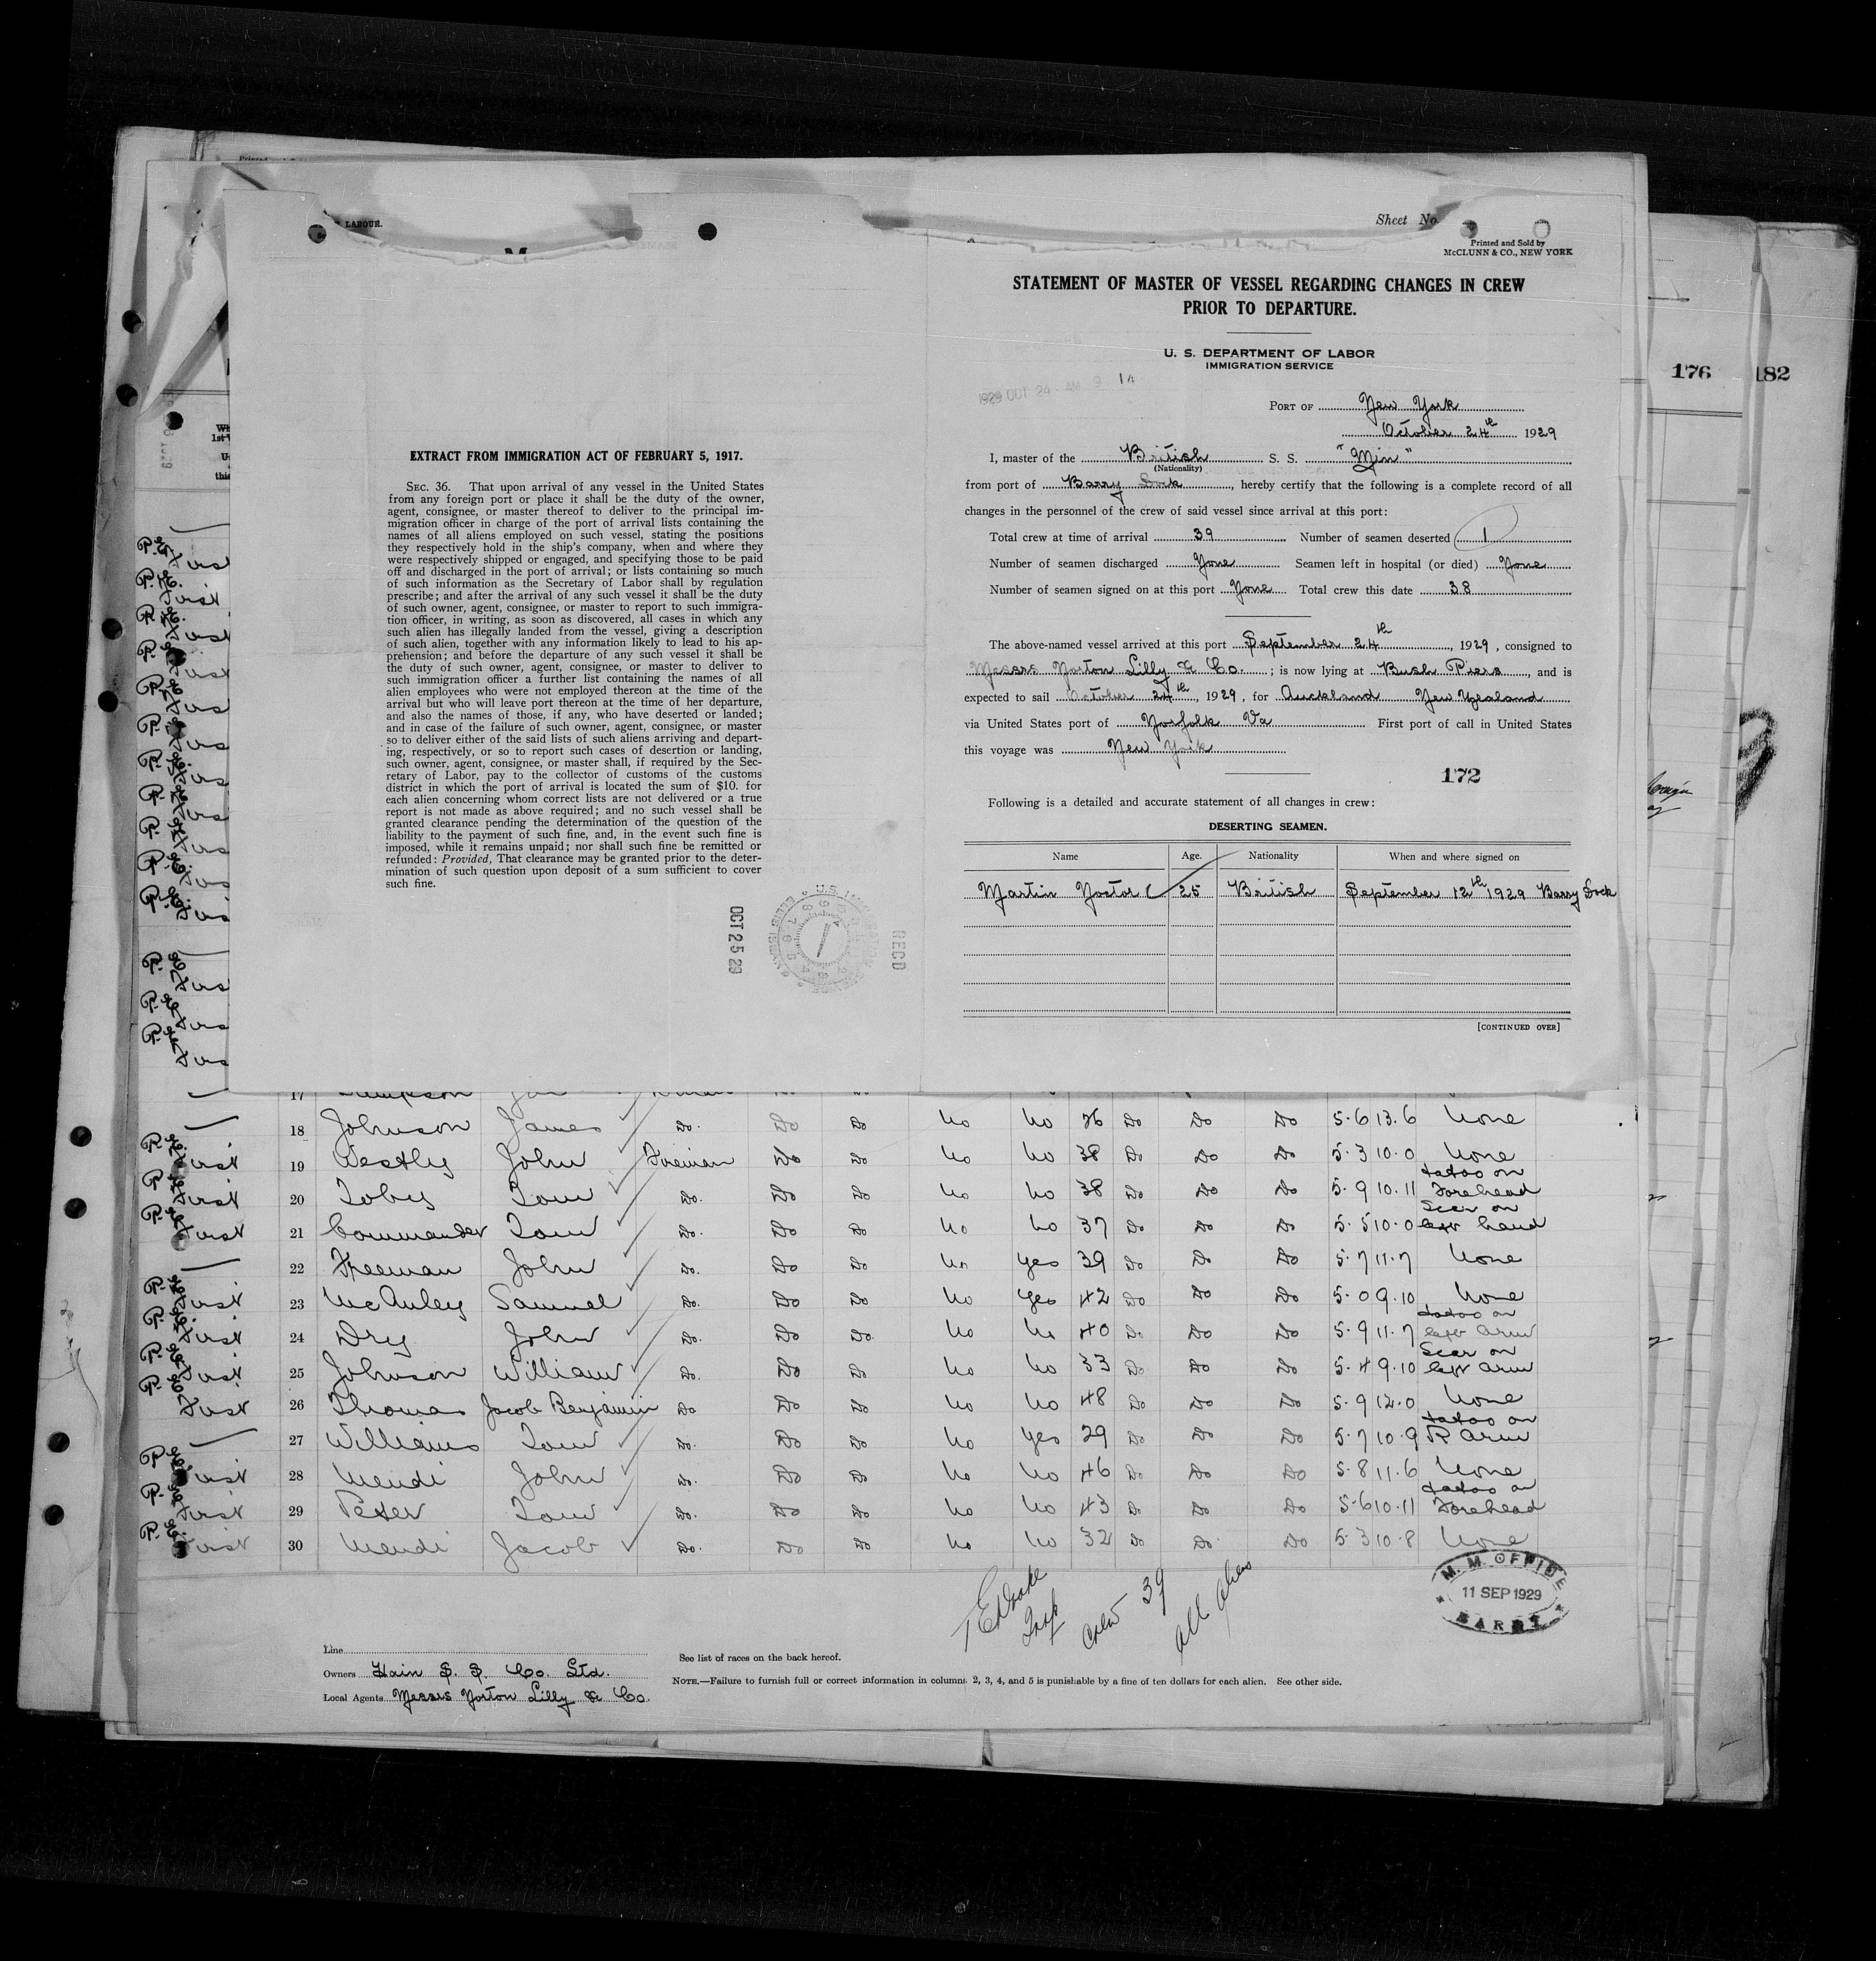 LABOUR.
Sheet No.
Printed and Sold by
McCLUNN & CO., NEW YORK
EXTRACT FROM IMMIGRATION ACT OF FEBRUARY 5, 1917.
SEC. 36. That upon arrival of any vessel in the United States
from any foreign port or place it shall be the duty of the owner,
agent, consignee, or master thereof to deliver to the principal im-
migration officer in charge of the port of arrival lists containing the
names of all aliens employed on such vessel, stating the positions
they respectively hold in the ship's company, when and where they
were respectively shipped or engaged, and specifying those to be paid
off and discharged in the port of arrival; or lists containing so much
of such information as the Secretary of Labor shall by regulation
prescribe; and after the arrival of any such vessel it shall be the duty
of such owner, agent, consignee, or master to report to such immigra-
tion officer, in writing, as soon as discovered, all cases in which any
such alien has illegally landed from the vessel, giving a description
of such alien, together with any information likely to lead to his ap-
prehension; and before the departure of any such vessel it shall be
the duty of such owner, agent, consignee, or master to deliver to
such immigration officer a further list containing the names of all
alien employees who were not employed thereon at the time of the
arrival but who will leave port thereon at the time of her departure,
and also the names of those, if any, who have deserted or landed;
and in case of the failure of such owner, agent, consignee, or master
so to deliver either of the said lists of such aliens arriving and depart-
ing, respectively, or so to report such cases of desertion or landing,
such owner, agent, consignee, or master shall, if required by the Sec-
retary of Labor, pay to the collector of customs of the customs
district in which the port of arrival is located the sum of $10. for
each alien concerning whom correct lists are not delivered or a true
report is not made as above required; and no such vessel shall be
granted clearance pending the determination of the question of the
liability to the payment of such fine, and, in the event such fine is
imposed, while it remains unpaid; nor shall such fine be remitted or
refunded: Provided, That clearance may be granted prior to the deter-
mination of such question upon deposit of a sum sufficient to cover
such fine.
OCT 25 29
RECD
STATEMENT OF MASTER OF VESSEL REGARDING CHANGES IN CREW
PRIOR TO DEPARTURE.
U. S. DEPARTMENT OF LABOR
IMMIGRATION SERVICE
1929 OCT 24 AM 9 14
PORT OF New York
October 24th 1929
I, master of the British S. S. "Min"
(Nationality)
from port of Barry Dock, hereby certify that the following is a complete record of all
changes in the personnel of the crew of said vessel since arrival at this port:
Total crew at time of arrival 39 Number of seamen deserted 1
Number of seamen discharged None Seamen left in hospital (or died) None
Number of seamen signed on at this port None Total crew this date 38
The above-named vessel arrived at this port September 24th, 1929, consigned to
Messrs Norton Lilly & Co.; is now lying at Bush Piers, and is
expected to sail October 24th, 1929, for Auckland New Zealand
via United States port of Norfolk Va First port of call in United States
this voyage was New York
172
Following is a detailed and accurate statement of all changes in crew:
DESERTING SEAMEN.
Name Age. Nationality When and where signed on
Martin Noctor 25 British September 12th 1929 Barry Dock
[CONTINUED OVER]
176
182
17
18 Johnson James Do. Do Do No No 26 Do Do Do 5-6 13.6 None
First 19 Westly John Fireman Do Do No No 38 Do Do Do 5-3 10.0 None
First 20 Toby Tom Do. Do Do No No 38 Do Do Do 5-9 10.11 tatoo on Forehead
First 21 Commander Tom Do. Do Do No No 37 Do Do Do 5-5 10.0 Scar on left hand
22 Freeman John Do. Do Do No Yes 39 Do Do Do 5-7 11.7 None
First 23 McAuley Samuel Do. Do Do No Yes 42 Do Do Do 5-0 9.10 None
First 24 Dry John Do. Do Do. No No 40 Do Do Do 5-9 11.7 tatoo on left arm
First 25 Johnson William Do. Do Do No No 33 Do Do Do 5-4 9.10 Scar on left arm
First 26 Thomas Jacob Benjamin Do Do Do No No 48 Do Do Do 5-9 12.0 None
27 Williams Tom Do. Do Do No Yes 29 Do Do Do 5-7 10.9 tatoo on R arm
First 28 Mendi John Do. Do Do No No 46 Do Do Do 5-8 11.6 None
First 29 Peter Tom Do. Do Do No No 43 Do Do Do 5-6 10.11 tatoo on Forehead
First 30 Mendi Jacob Do. Do Do No No 32 Do Do Do 5-3 10.8 None
Crew 39
all aliens
M. M. OFFICE
11 SEP 1929
BARRY
Line
Owners Hain S. S. Co. Ltd.
Local Agents Messrs Norton Lilly & Co.
See list of races on the back hereof.
NOTE.—Failure to furnish full or correct information in columns 2, 3, 4, and 5 is punishable by a fine of ten dollars for each alien. See other side.